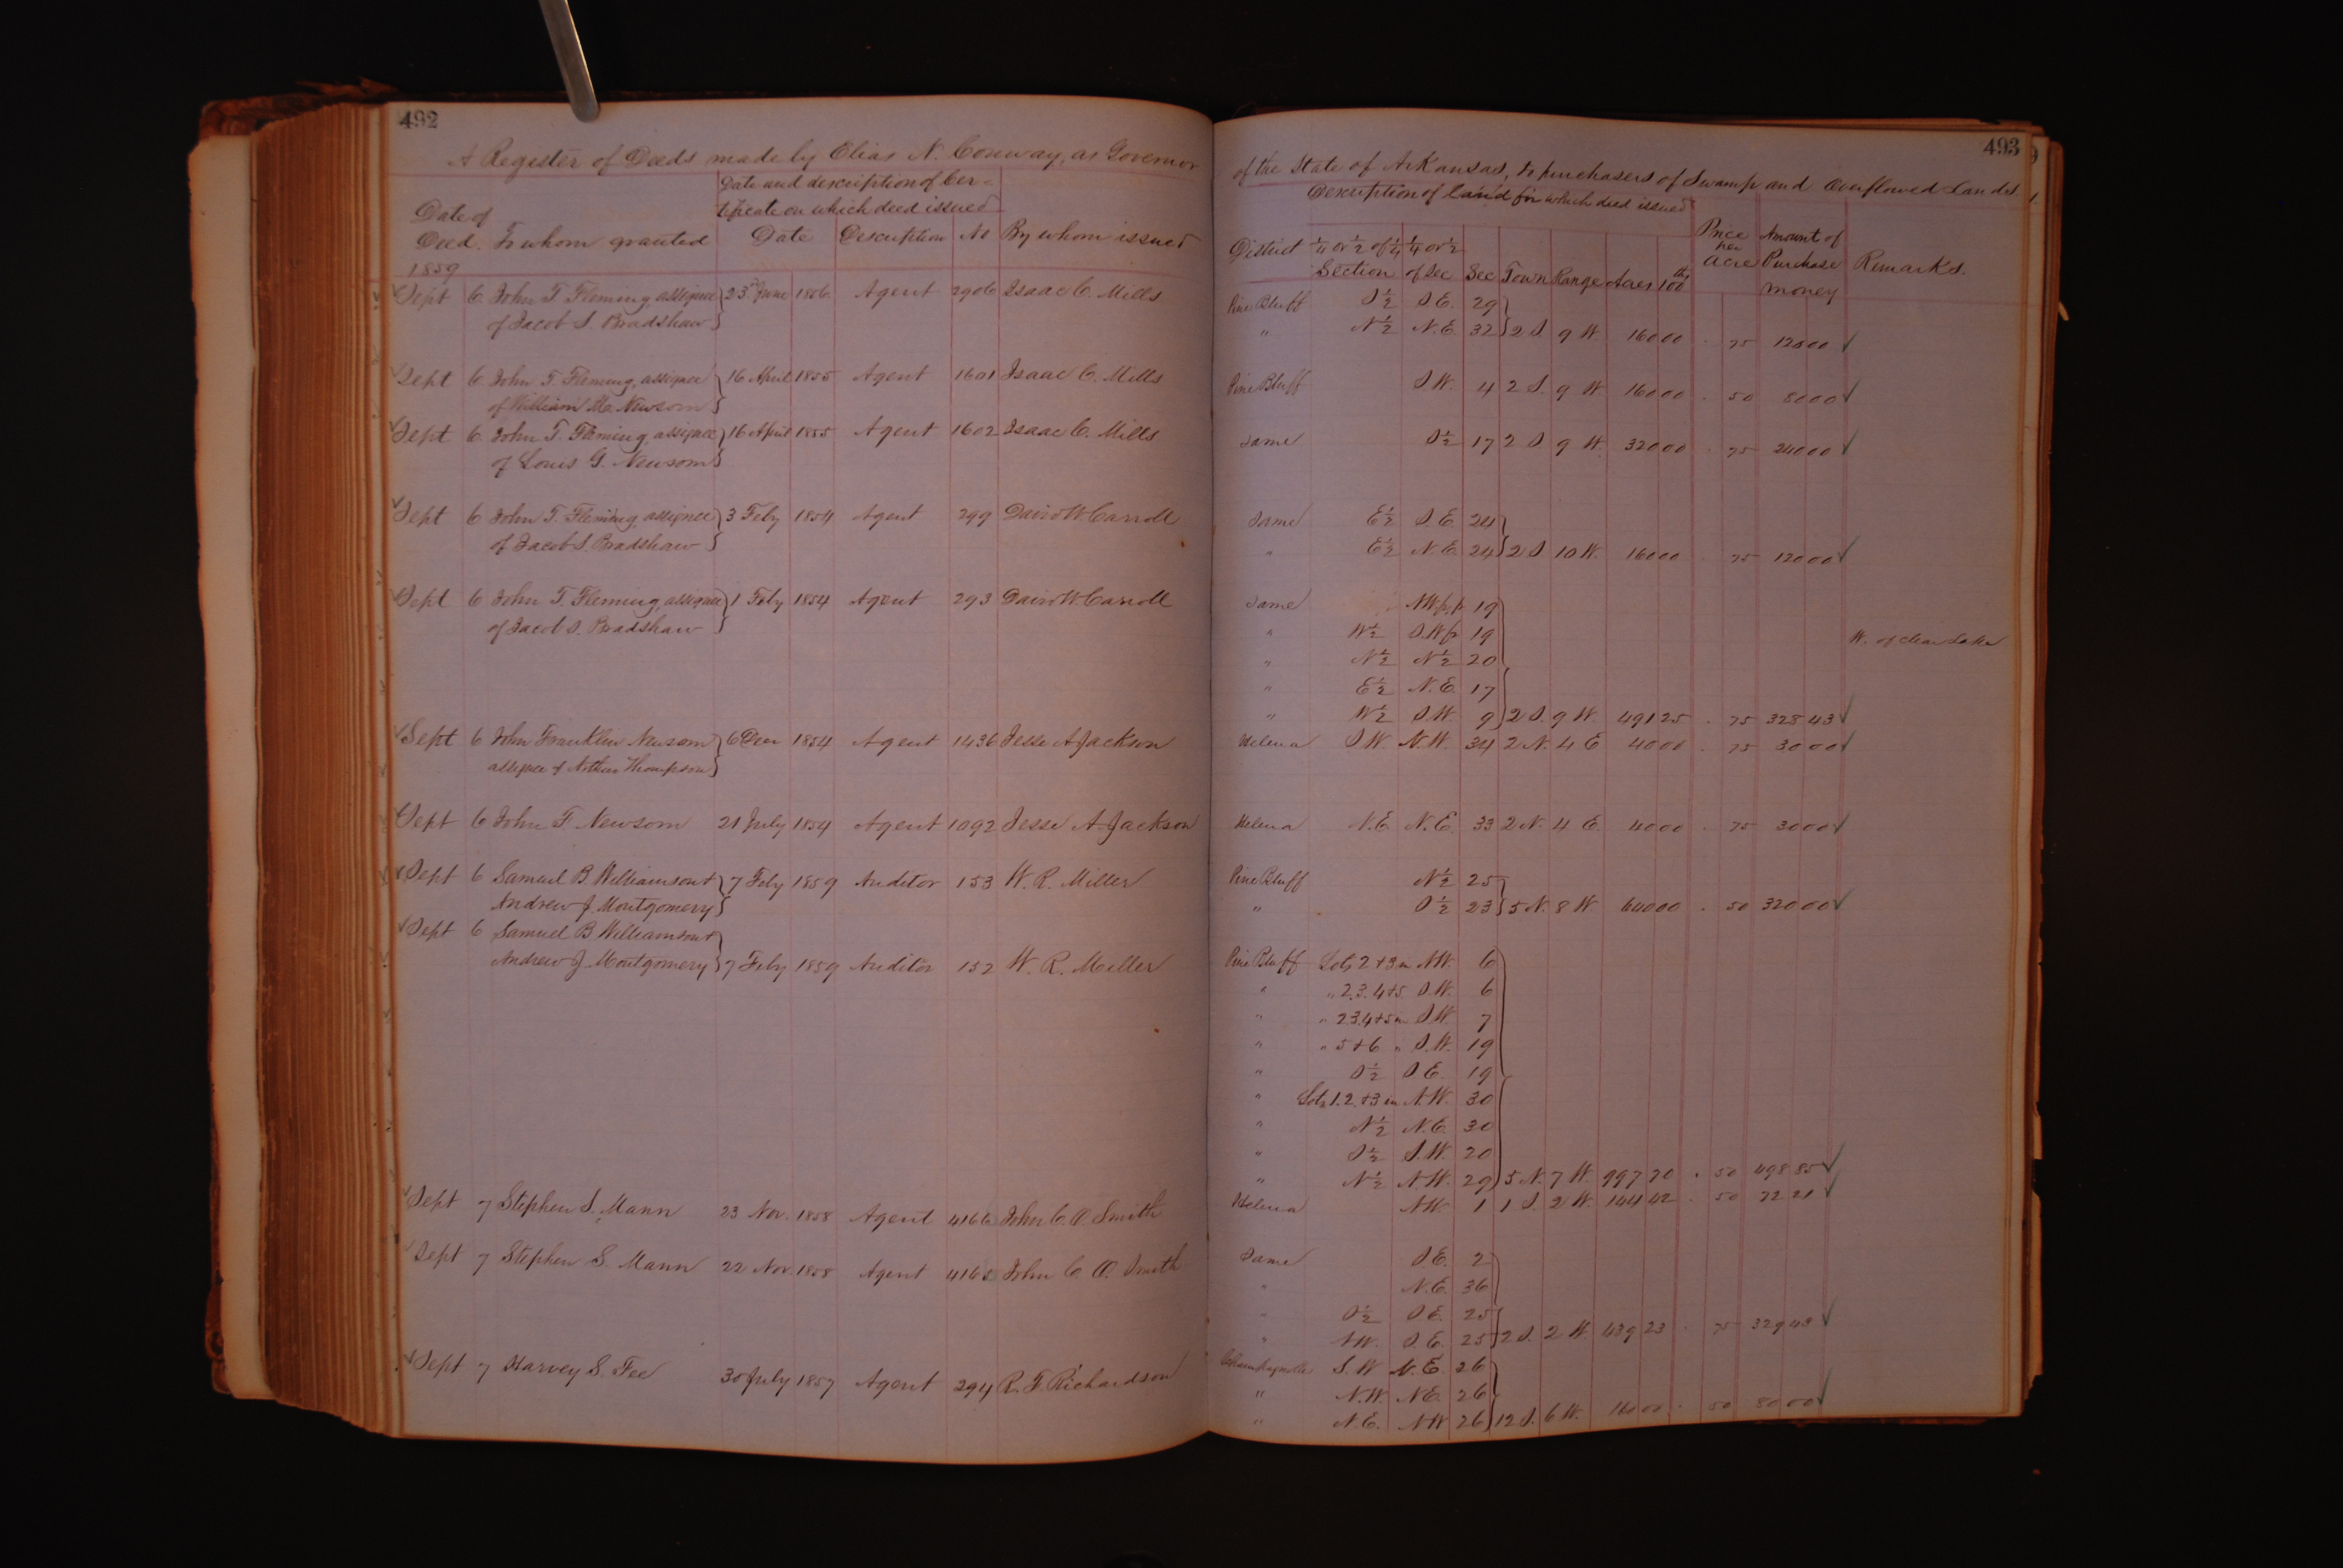 492
A Register of Deeds made by Elias N. Conway, as Governor
Date and description of Cer-
tificate on which deed issued
Date of
Deed. To whom granted Date Description No By whom issued
1859
Sept 6 John T. Fleming assignee 23d June 1856 Agent 2906 Isaac C. Mills
of Jacob S. Bradshaw
Sept 6 John T. Fleming, assignee 16 April 1855 Agent 1601 Isaac C. Mills
of William M. Newsom
Sept 6 John T. Fleming, assignee 16 April 1855 Agent 1602 Isaac C. Mills
of Louis G. Newsom
Sept 6 John T. Fleming, assignee 3 Feby 1854 Agent 299 David W. Carroll
of Jacob S. Bradshaw
Sept 6 John T. Fleming, assignee 1 Feby 1854 Agent 293 David W. Carroll
of Jacob S. Bradshaw
Sept 6 John Franklin Newsom 6 Decr 1854 Agent 1436 Jesse A Jackson
assignee of Arthur Thompson
Sept 6 John F. Newsom 21 July 1854 Agent 1092 Jesse A Jackson
Sept 6 Samuel B Williamson + 7 Feby 1859 Auditor 153 W. R. Miller
Andrew J. Montgomery
Sept 6 Samuel B Williamson +
Andrew J Montgomery 7 Feby 1859 Auditor 152 W. R. Miller
Sept 7 Stephen S. Mann 23 Nov. 1858 Agent 4166 John C. O. Smith
Sept 7 Stephen S. Mann 22 Nov. 1858 Agent 4165 John C O. Smith
Sept 7 Harvey S. Fee 30 July 1857 Agent 294 R. F. Richardson
493
of the State of Arkansas, to purchasers of Swamp and Overflowed Lands
Description of land for which deed issued
District ¼ or ½ of ¼ ¼ or ½ Price per Amount of
Section of Sec Sec Town Range Acres 100th acre Purchase Remarks.
money
Pine Bluff S½ S.E. 29
" N½ N.E. 32 2 S. 9 W. 160 00 . 75 120 00
Pine Bluff S.W. 4 2 S. 9 W 160 00 . 50 80 00
Same S½ 17 2 S. 9 W. 320 00 . 75 240 00
Same E½ S.E. 24
" E½ N.E. 24 2 S. 10 W. 160 00 . 75 120 00
Same NW fr. 19
" W½ S.W fr 19 W. of Clear Lake
" N½ N½ 20
" E½ N.E. 17
" W½ S.W. 9 2 S. 9 W. 491 25 . 75 328 43
Helena S.W. N.W. 34 2 N. 4 E 40 00 . 75 30 00
Helena N.E N.E. 33 2 N. 4 E. 40 00 . 75 30 00
Pine Bluff N½ 25
" S½ 23 5 N. 8 W. 640 00 . 50 320 00
Pine Bluff Lots 2 + 3 in NW. 6
" " 2.3.4+5 S.W. 6
" " 2.3.4+5 in S.W. 7
" " 5+6 " S.W. 19
" S½ S E. 19
" Lots 1.2.+3 in N.W. 30
" N½ N.E. 30
" S½ S.W. 20
" N½ N.W. 29 5 N. 7 W. 997 70 . 50 498 85
Helena NW. 1 1 S. 2 W. 144 42 . 50 72 21
Same S.E. 2
" N.E. 36
" S½ S.E. 25
" N.W. S.E. 25 2 S. 2 W. 439 23 . 75 329 43
S.W N.E. 26
" N.W. N.E. 26
" N.E. N.W 26 12 S. 6 W. 160 00 . 50 80 00